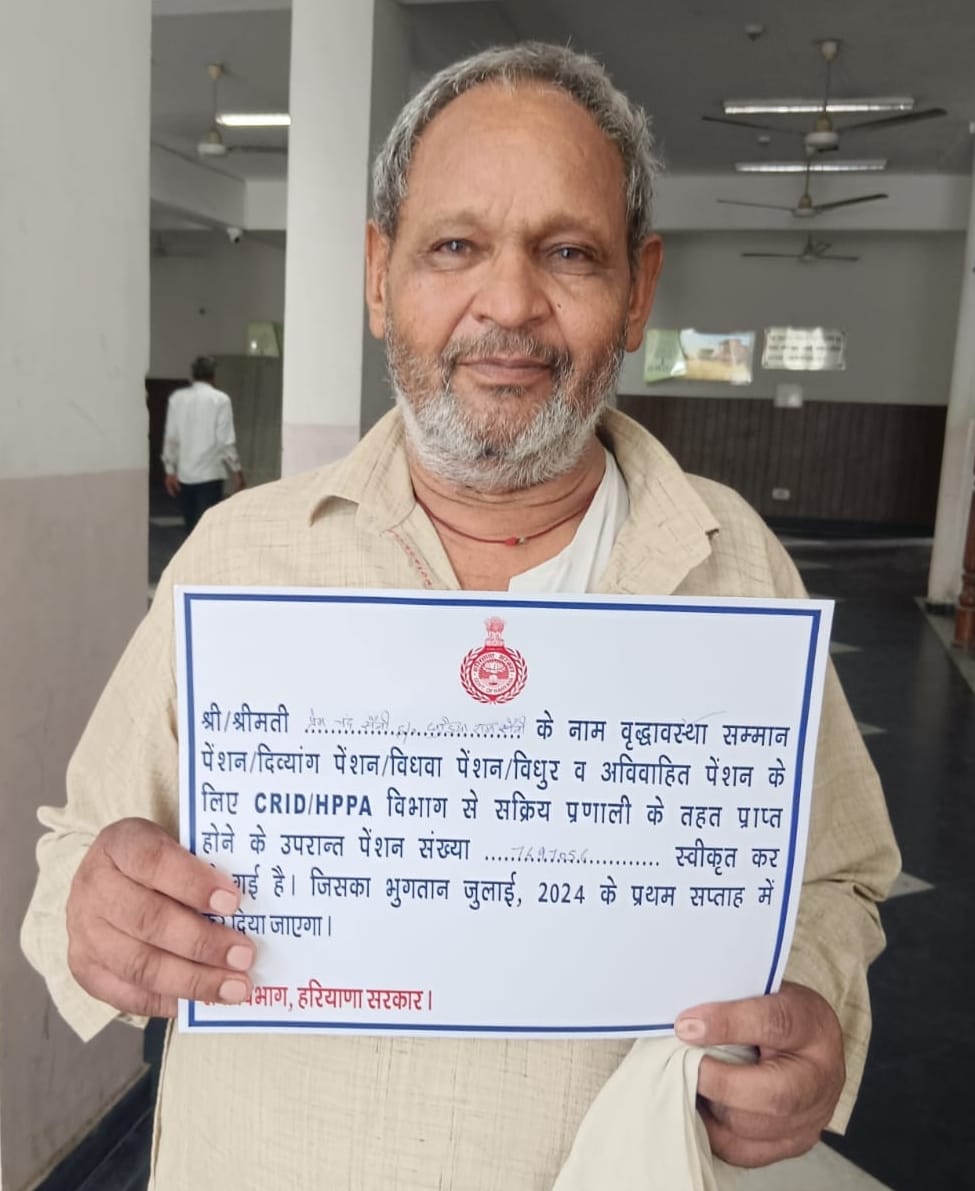 श्री/श्रीमती प्रेम चंद सैनी s/o राम सैनी के नाम वृद्धावस्था सम्मान
पेंशन/दिव्यांग पेंशन/विधवा पेंशन/विधुर व अविवाहित पेंशन के
लिए CRID/HPPA विभाग से सक्रिय प्रणाली के तहत प्राप्त
होने के उपरान्त पेंशन संख्या ................ स्वीकृत कर
गई है। जिसका भुगतान जुलाई, 2024 के प्रथम सप्ताह में
दिया जाएगा।
हरियाणा सरकार।